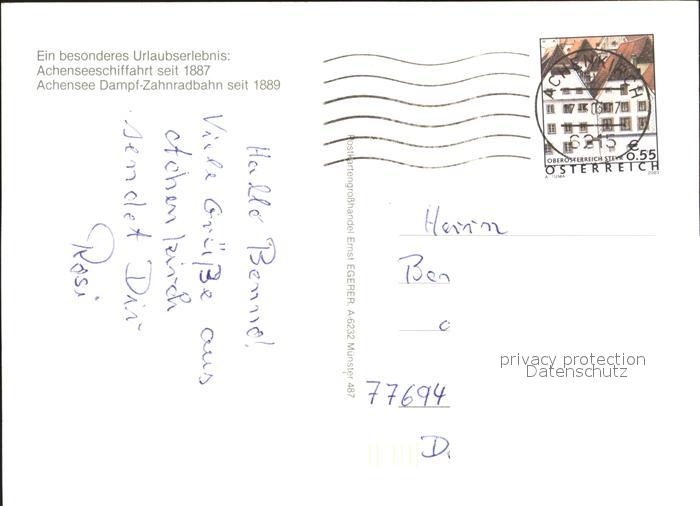 Ein besonderes Urlaubserlebnis:
Achenseeschiffahrt seit 1887
Achensee Dampf-Zahnradbahn seit 1889
Hallo Benno!
Viele Grüße aus
Achenkirch
sendet Dir
Rosi
Postkartengroßhandel Ernst EGERER, A-6232 Münster 487
ACHENKIRCH
6215
€ 0.55
OBERÖSTERREICH STEYR
ÖSTERREICH
A. TUMA 2003
Herrn
Ben
77694
D.
privacy protection
Datenschutz